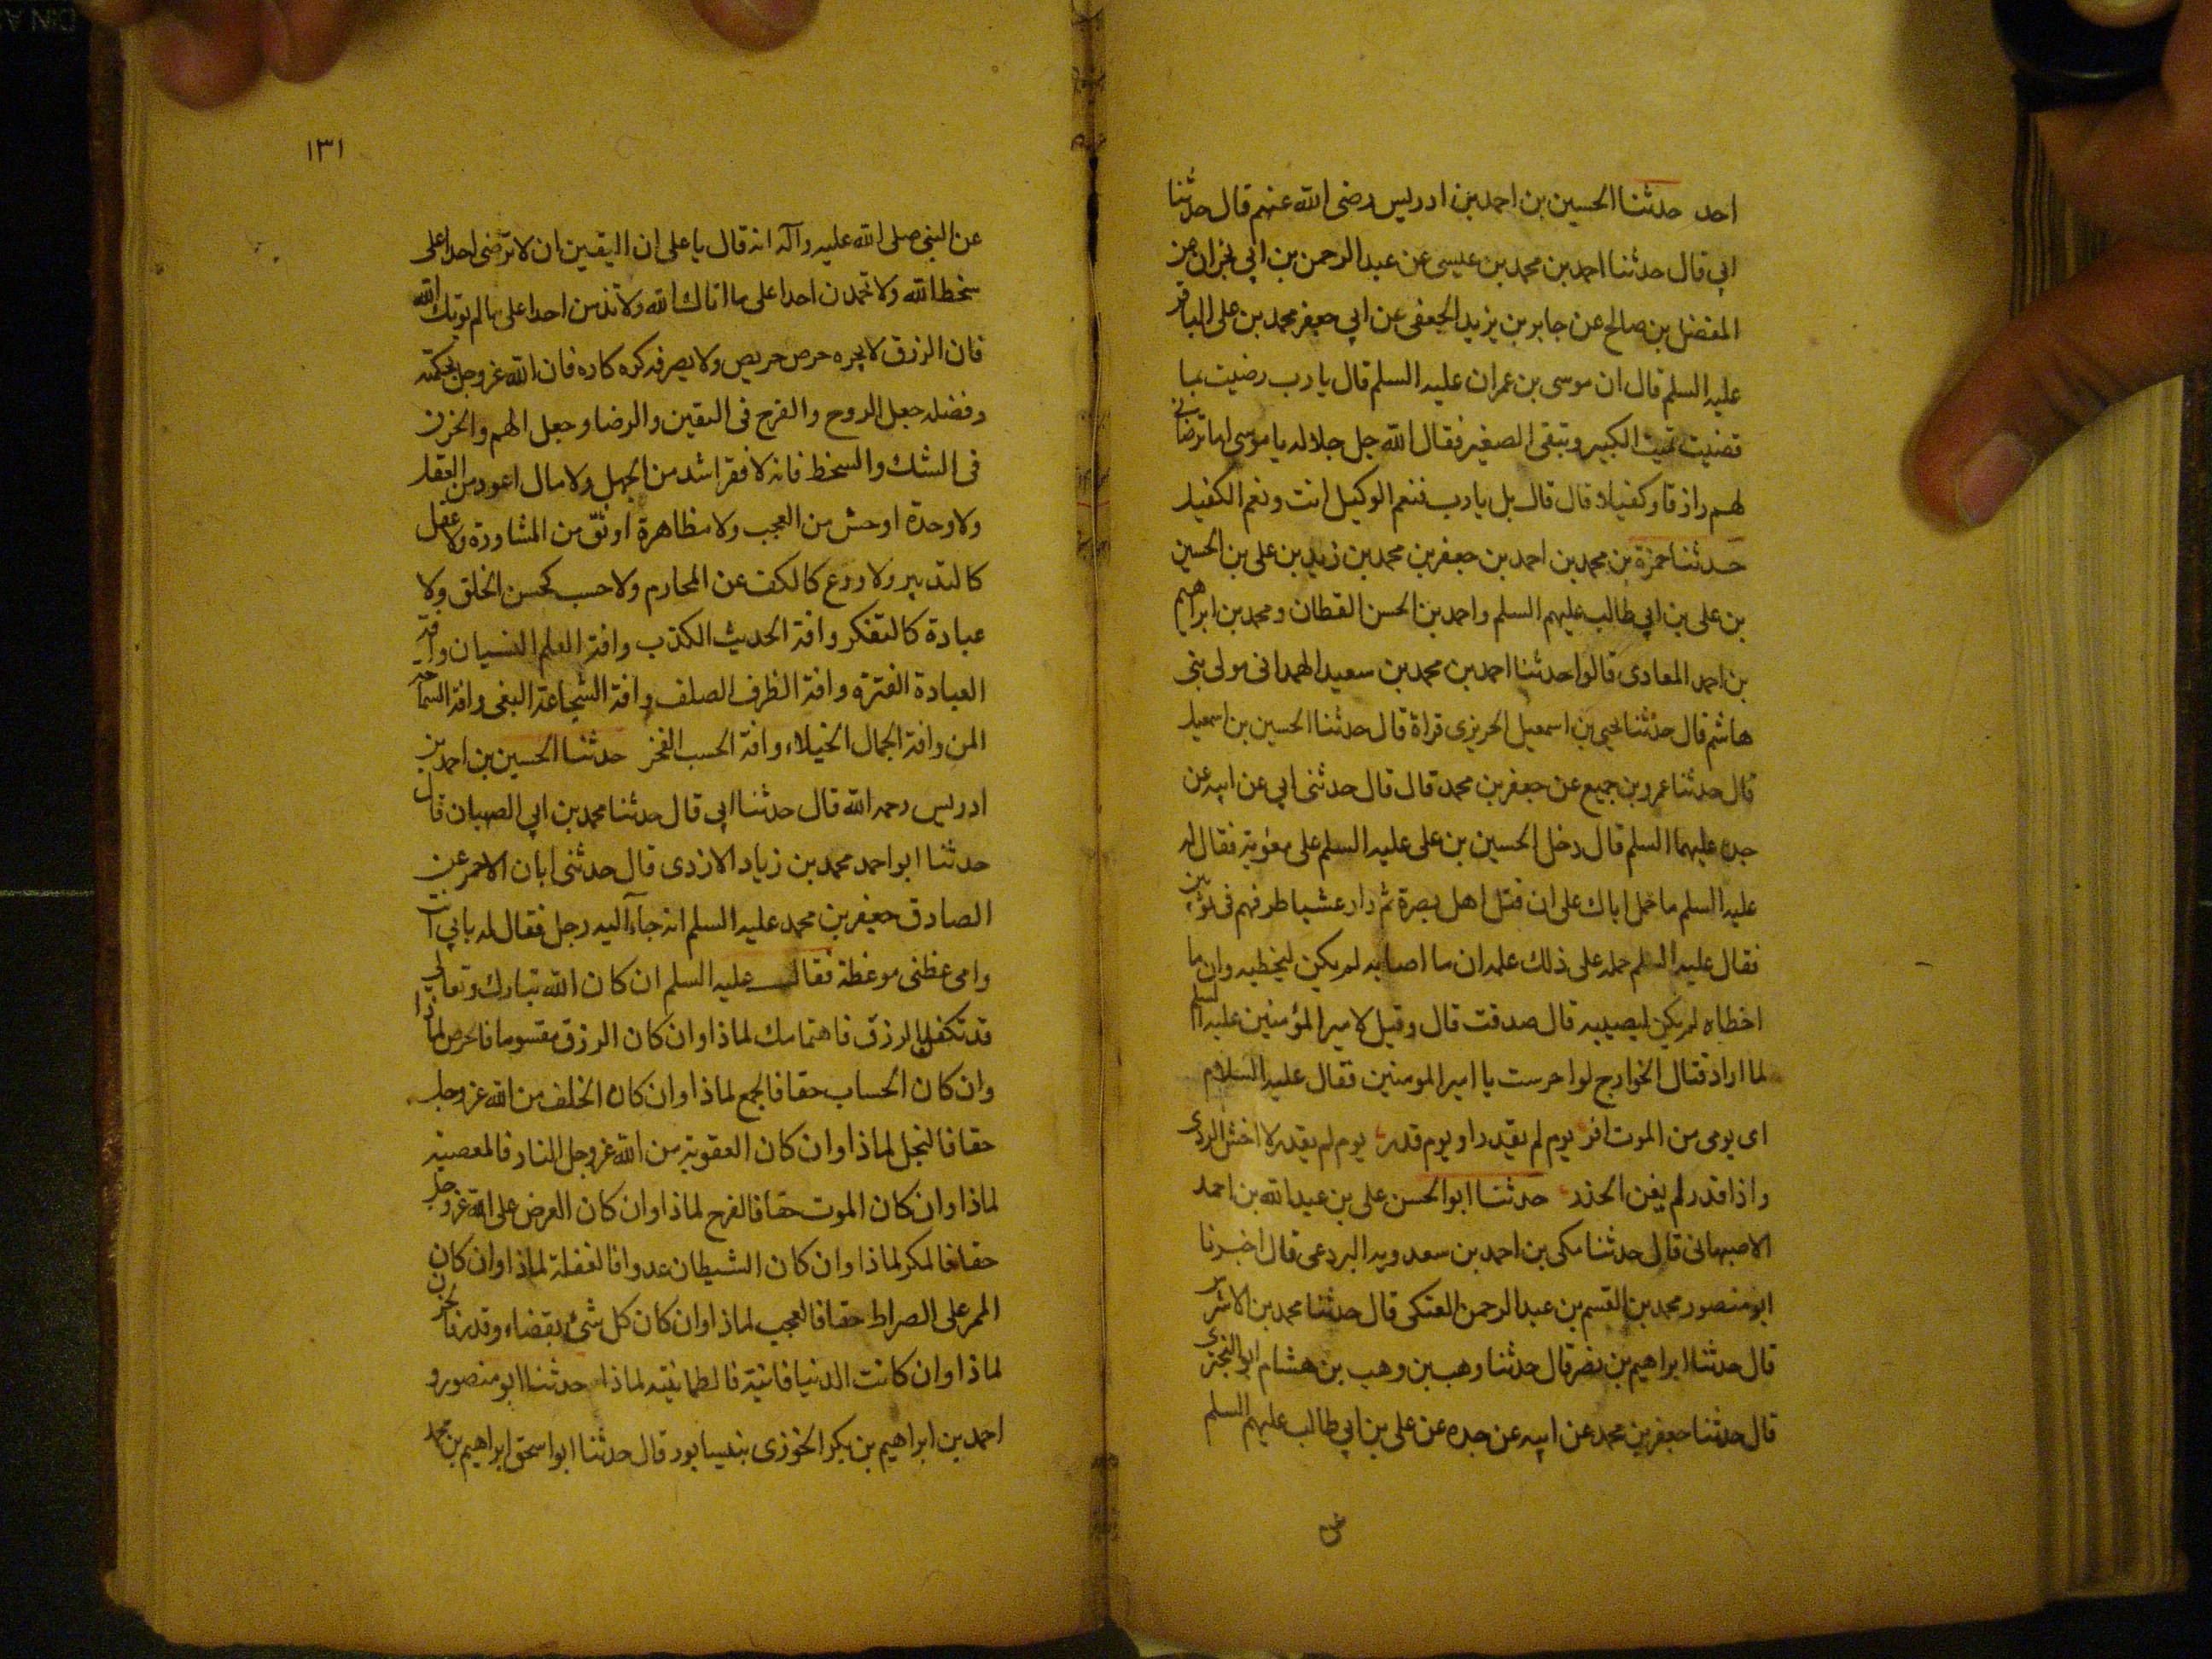 احد حدثنا الحسين بن احمد بن ادريس رضى الله عنهم قال حدثنا
ابي قال حدثنا احمد بن محمد بن عيسى عن عبد الرحمن بن ابي نجران عن
المفضل بن صالح عن جابر بن يزيد الجعفى عن ابي جعفر محمد بن على الباقر
عليه السلم قال ان موسى بن عمران عليه السلم قال يا رب رضيت بما
قضيت تميت الكبير وتبقى الصغير فقال الله جل جلاله يا موسى اما ترضانى
لهم رازقا وكفيلا قال قال بل يا رب فنعم الوكيل انت ونعم الكفيل
حدثنا حمزة بن محمد بن احمد بن جعفر بن محمد بن زيد بن على بن الحسين
بن على بن ابي طالب عليهم السلم واحمد بن الحسن القطان ومحمد بن ابراهيم
بن احمد المعادى قالوا حدثنا احمد بن محمد بن سعيد الهمدانى مولى بنى
هاشم قال حدثنا يحيى بن اسمعيل الحريزى قراة قال حدثنا الحسين بن اسمعيل
قال حدثنا عمرو بن جميع عن جعفر بن محمد قال قال حدثنى ابي عن ابيه عن
جده عليهما السلم قال دخل الحسين بن على عليه السلم على معوية فقال له
عليه السلم ما حمل اباك على ان قتل اهل بصرة ثم دار عشيا طرفهم فى ثوبين
فقال عليه السلم حمله على ذلك علمه ان ما اصابه لم يكن ليخطيه وان ما
اخطاه لم يكن ليصيبه قال صدقت قال وقيل لامير المؤمنين عليه السلم
لما اراد قتال الخوارج لو احرست يا امير المومنين فقال عليه السلام
اى يومى من الموت افر يوم لم يقدر او يوم قدر يوم لم يقدر لا اخش الردى
واذا قدر لم يغن الحذر حدثنا ابو الحسن على بن عبد الله بن احمد
الاصبهانى قال حدثنا مكى بن احمد بن سعدويه البردعى قال اخبرنا
ابو منصور محمد بن القسم بن عبد الرحمن العتكى قال حدثنا محمد بن الاشرس
قال حدثنا ابراهيم بن نصر قال حدثنا وهب بن وهب بن هشام ابو البخترى
قال حدثنا جعفر بن محمد عن ابيه عن جده عن على بن ابي طالب عليهم السلم
١٣١
عن النبى صلى الله عليه وآله انه قال يا على ان اليقين ان لا ترضى احدا على
سخط الله ولا تحمدن احدا على ما اتاك الله ولا تذمن احدا على ما لم يوتك الله
فان الرزق لا يجره حرص حريص ولا يصرفه كره كاره فان الله عز وجل بحكمته
وفضله جعل الروح والفرح فى اليقين والرضا وجعل الهم والحزن
فى الشك والسخط فانه لا فقر اشد من الجهل ولا مال اعود من العقل
ولا وحدة اوحش من العجب ولا مظاهرة اوثق من المشاورة ولا عقل
كالتدبير ولا ورع كالكف عن المحارم ولا حسب كحسن الخلق ولا
عبادة كالتفكر وافة الحديث الكذب وافة العلم النسيان وافة
العبادة الفترة وافة الظرف الصلف وافة الشجاعة البغى وافة السماحة
المن وافة الجمال الخيلاء وافة الحسب الفخر حدثنا الحسين بن احمد بن
ادريس رحمه الله قال حدثنا ابى قال حدثنا محمد بن ابي الصهبان قال
حدثنا ابو احمد محمد بن زياد الازدى قال حدثنى ابان الاحمر عن
الصادق جعفر بن محمد عليه السلم انه جاء اليه رجل فقال له بابي انت
وامى عظنى موعظة فقال عليه السلم ان كان الله تبارك وتعالى
قد تكفل بالرزق فاهتمامك لماذا وان كان الرزق مقسوما فالحرص لماذا
وان كان الحساب حقا فالجمع لماذا وان كان الخلف من الله عز وجل
حقا فالبخل لماذا وان كان العقوبة من الله عز وجل النار فالمعصية
لماذا وان كان الموت حقا فالفرح لماذا وان كان العرض على الله عز وجل
حقا فالمكر لماذا وان كان الشيطان عدوا فالغفلة لماذا وان كان
الممر على الصراط حقا فالعجب لماذا وان كان كل شئ بقضاء وقدر فالحزن
لماذا وان كانت الدنيا فانية فالطمانينة لماذا حدثنا ابو منصور و
احمد بن ابراهيم بن بكر الخوزى بنيسابور قال حدثنا ابو اسحق ابراهيم بن محمد